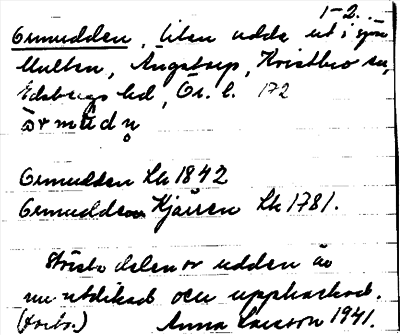 1-2.
Ormudden, liten udde ut i sjön
Multen, Ängatorp, Kristbro sn,
Edsbergs hd, Ör. l. 172
Ormudden Lk 1842
Ormudden Kjärren Lk 1781.
Största delen av udden är
nu utdikad och uppbackad.
Anna Larsson 1941.